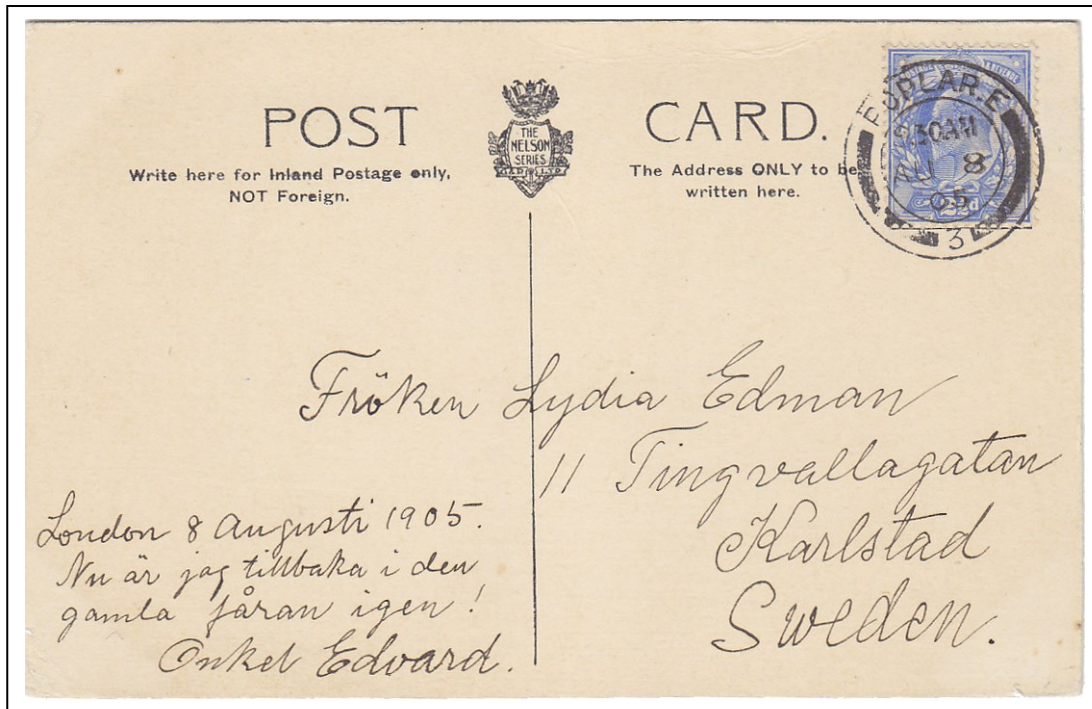 POST CARD.
THE
NELSON
SERIES
Write here for Inland Postage only,
NOT Foreign.
The Address ONLY to be
written here.
POPLAR.E
30AM
AU 8
05
3
2½d
Fröken Lydia Edman
11 Tingvallagatan
Karlstad
Sweden.
London 8 Augusti 1905.
Nu är jag tillbaka i den
gamla fåran igen!
Onkel Edvard.